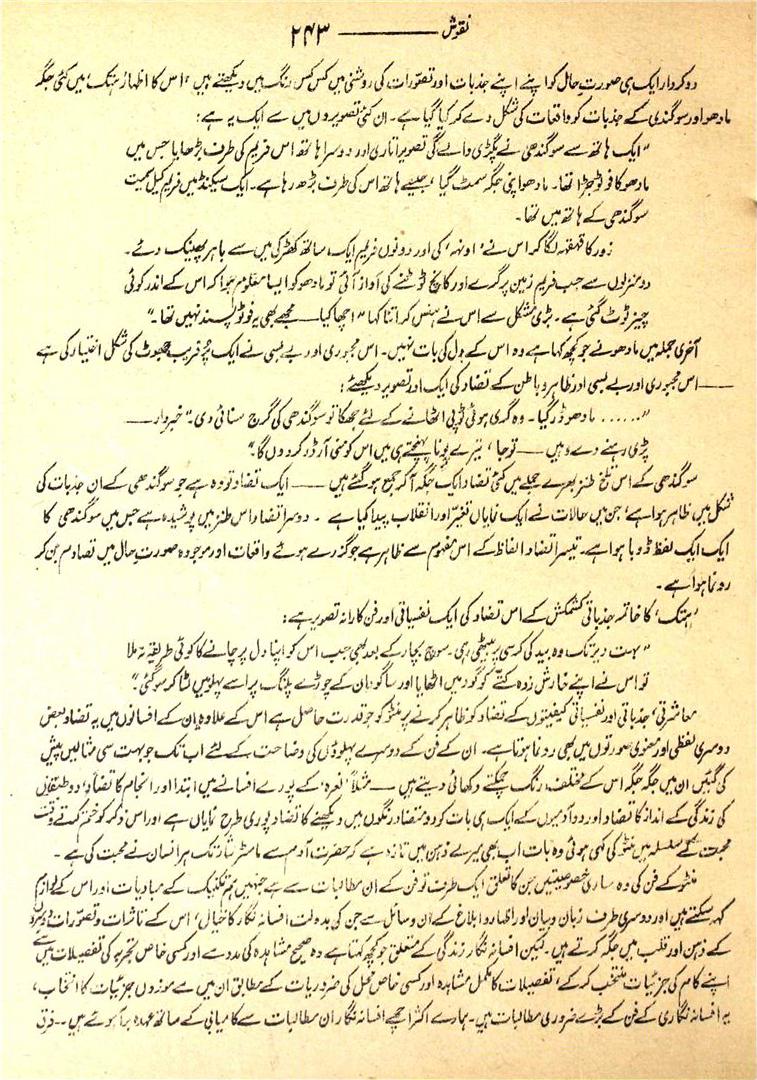 نقوش ——— ۲۴۳
دو کردار ایک ہی صورتِ حال کو اپنے اپنے جذبات اور تصوّرات کی روشنی میں کس کس رنگ میں دیکھتے ہیں، اس کا اظہار 'ہتک' میں کئی جگہ
مادھو اور سوگندی کے جذبات کو واقعات کی شکل دے کر کیا گیا ہے۔ ان کئی تصویروں میں سے ایک یہ ہے:
"ایک ہاتھ سے سوگندھی نے پگڑی والے کی تصویر اتاری اور دوسرا ہاتھ اس فریم کی طرف بڑھایا جس میں
مادھو کا فوٹو جڑا تھا۔ مادھو اپنی جگہ سمٹ گیا، جیسے ہاتھ اس کی طرف بڑھ رہا ہے۔ ایک سیکنڈ میں فریم کیل سمیت
سوگندھی کے ہاتھ میں تھا۔
زور کا قہقہہ لگا کر اس نے 'اونہہ' کی اور دونوں فریم ایک ساتھ کھڑکی میں سے باہر پھینک دئے۔
دو منزلوں سے جب فریم زمین پر گرے اور کانچ ٹوٹنے کی آواز آئی تو مادھو کو ایسا معلوم ہوا کہ اس کے اندر کوئی
چیز ٹوٹ گئی ہے۔ بڑی مشکل سے اس نے ہنس کر اتنا کہا "اچھا کیا —— مجھے بھی یہ فوٹو پسند نہیں تھا۔"
آخری جملہ میں مادھو نے جو کچھ کہا ہے وہ اس کے دل کی بات نہیں۔ اس مجبوری اور بے بسی نے ایک پُر فریب جھوٹ کی شکل اختیار کی ہے
—— اس مجبوری اور بے بسی اور ظاہر و باطن کے تضاد کی ایک اور تصویر دیکھئے:
"...... مادھو ڈر گیا۔ وہ گری ہوئی ٹوپی اٹھانے کے لئے جھکا تو سوگندھی کی گرج سنائی دی۔ "خبردار ——
پڑی رہنے دے وہیں —— تو جا، تیرے پونا پہنچتے ہی میں اس کو منی آرڈر کر دوں گا۔"
سوگندھی کے اس تلخ طنز بھرے جملے میں کئی تضاد ایک جگہ آ کر جمع ہو گئے ہیں —— ایک تضاد تو وہ ہے جو سوگندھی کے ان جذبات کی
شکل میں ظاہر ہوا ہے، جن میں حالات نے ایک نمایاں تغیّر اور انقلاب پیدا کیا ہے۔ دوسرا تضاد اس طنز میں پوشیدہ ہے جس میں سوگندھی کا
ایک ایک لفظ ڈوبا ہوا ہے۔ تیسرا تضاد الفاظ کے اس مفہوم سے ظاہر ہے جو گزرے ہوئے واقعات اور موجودہ صورتِ حال میں تصادم بن کر
رونما ہوا ہے۔
'ہتک' کا خاتمہ جذباتی کشمکش کے اس تضاد کی ایک نفسیاتی اور فن کارانہ تصویر ہے:
"بہت دیر تک وہ بید کی کرسی پر بیٹھی رہی۔ سوچ بچار کے بعد بھی جب اس کو اپنا دل پرچانے کا کوئی طریقہ نہ ملا
تو اس نے اپنے خارش زدہ کتّے کو گود میں اٹھایا اور ساگوان کے چوڑے پلنگ پر اسے پہلو میں لٹا کر سو گئی۔"
معاشرتی، جذباتی اور نفسیاتی کیفیتوں کے تضاد کو ظاہر کرنے پر منٹو کو جو قدرت حاصل ہے اس کے علاوہ ان کے افسانوں میں یہ تضاد بعض
دوسری لفظی اور معنوی صورتوں میں بھی رونما ہوتا ہے۔ ان کے فن کے دوسرے پہلوؤں کی وضاحت کے لئے اب تک جو بہت سی مثالیں پیش
کی گئیں ان میں جگہ جگہ اس کے مختلف رنگ چمکتے دکھائی دیتے ہیں —— مثلاً 'نعرہ' کے پورے افسانے میں ابتدا اور انجام کا تضاد، دو طبقوں
کی زندگی کے انداز کا تضاد اور دو آدمیوں کے ایک ہی بات کو دو متضاد رنگوں میں دیکھنے کا تضاد پوری طرح نمایاں ہے اور اس ذکر کو ختم کرتے وقت
محبت کے سلسلہ میں منٹو کی کہی ہوئی وہ بات اب بھی میرے ذہن میں تازہ ہے کہ حضرت آدم سے ماسٹر نثار تک ہر انسان نے محبت کی ہے۔
منٹو کے فن کی وہ ساری خصوصیتیں جن کا تعلق ایک طرف تو فن کے ان مطالبات سے ہے جنہیں ہم تکنیک کے مبادیات اور اس کے لوازم
کہہ سکتے ہیں اور دوسری طرف زبان و بیان اور اظہار و ابلاغ کے ان وسائل سے جن کی بدولت افسانہ نگار کا خیال، اس کے تاثرات و تصوّرات دوسروں
کے ذہن اور قلب میں جگہ کرتے ہیں۔ لیکن افسانہ نگار زندگی کے متعلق جو کچھ کہتا ہے وہ صحیح مشاہدہ کی مدد سے اور کسی خاص تجربہ کی تفصیلات میں سے
اپنے کام کی جزئیات منتخب کر کے، تفصیلات کا مکمل مشاہدہ اور کسی خاص محل کی ضروریات کے مطابق ان میں سے موزوں جزئیات کا انتخاب،
یہ افسانہ نگاری کے فن کے بڑے ضروری مطالبات ہیں۔ ہمارے اکثر اچھے افسانہ نگار ان مطالبات سے کامیابی کے ساتھ عہدہ برآ ہوئے ہیں۔۔ فرق